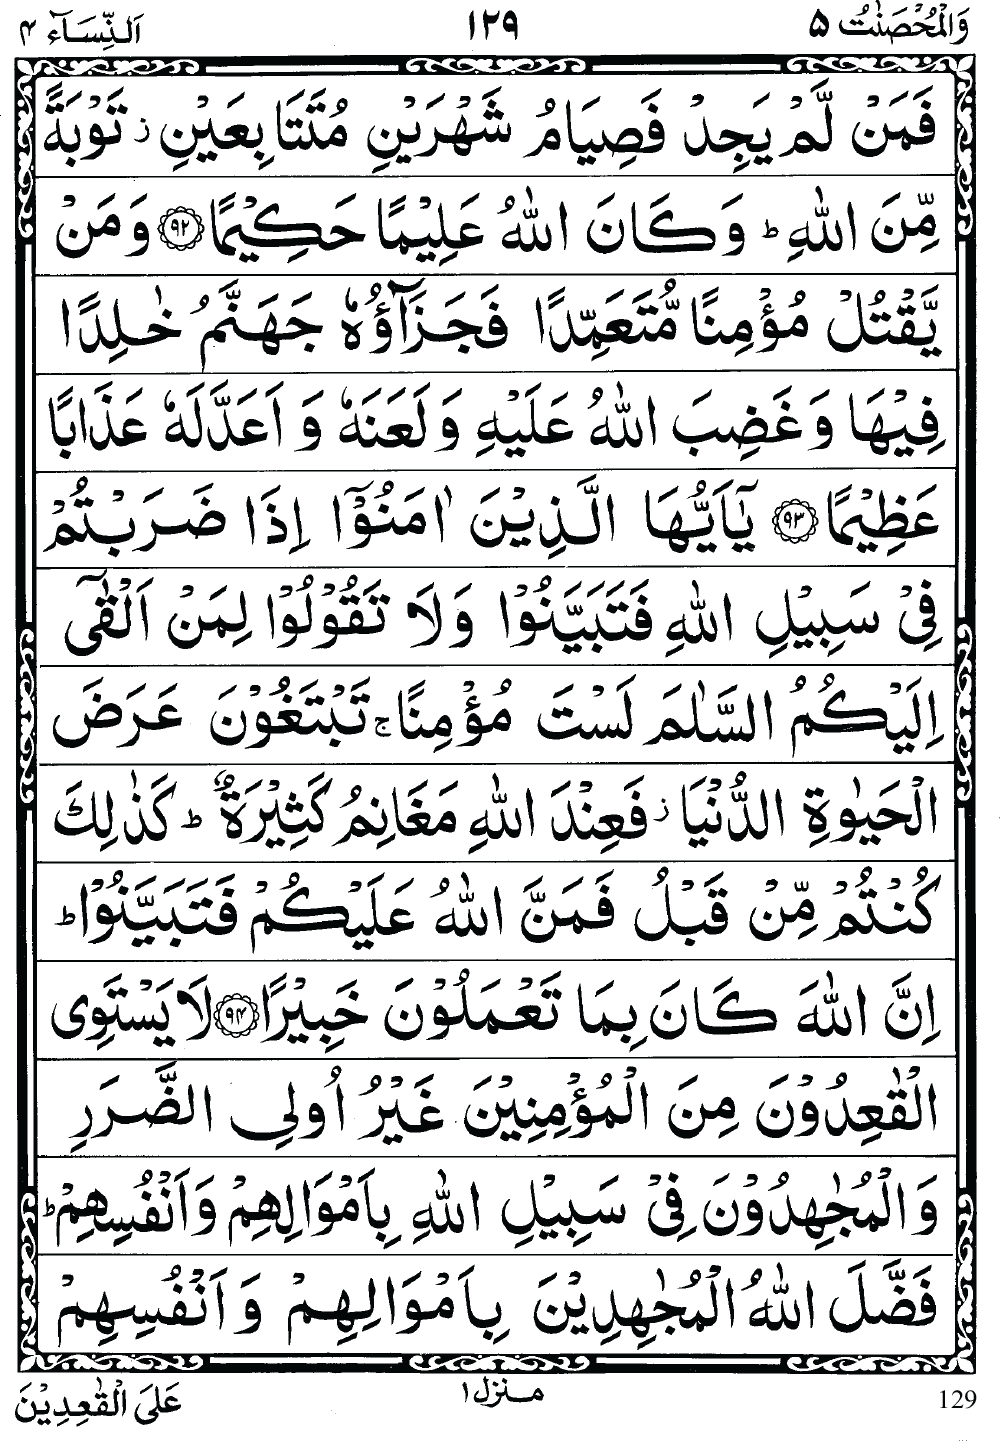 وَالْمُحْصَنٰتُ ٥ ١٢٩ اَلنِّسَآء ٤
فَمَنْ لَّمْ يَجِدْ فَصِيَامُ شَهْرَيْنِ مُتَتَابِعَيْنِ ز تَوْبَةً
مِّنَ اللّٰهِ ؕ وَكَانَ اللّٰهُ عَلِيْمًا حَكِيْمًا ٩٢ وَمَنْ
يَّقْتُلْ مُؤْمِنًا مُّتَعَمِّدًا فَجَزَآؤُهٗ جَهَنَّمُ خٰلِدًا
فِيْهَا وَغَضِبَ اللّٰهُ عَلَيْهِ وَلَعَنَهٗ وَاَعَدَّلَهٗ عَذَابًا
عَظِيْمًا ٩٣ يٰٓاَيُّهَا الَّذِيْنَ اٰمَنُوْٓا اِذَا ضَرَبْتُمْ
فِيْ سَبِيْلِ اللّٰهِ فَتَبَيَّنُوْا وَلَا تَقُوْلُوْا لِمَنْ اَلْقٰٓى
اِلَيْكُمُ السَّلٰمَ لَسْتَ مُؤْمِنًا ۚ تَبْتَغُوْنَ عَرَضَ
الْحَيٰوةِ الدُّنْيَا ز فَعِنْدَ اللّٰهِ مَغَانِمُ كَثِيْرَةٌ ؕ كَذٰلِكَ
كُنْتُمْ مِّنْ قَبْلُ فَمَنَّ اللّٰهُ عَلَيْكُمْ فَتَبَيَّنُوْا ؕ
اِنَّ اللّٰهَ كَانَ بِمَا تَعْمَلُوْنَ خَبِيْرًا ٩٤ لَا يَسْتَوِى
الْقٰعِدُوْنَ مِنَ الْمُؤْمِنِيْنَ غَيْرُ اُولِى الضَّرَرِ
وَالْمُجٰهِدُوْنَ فِيْ سَبِيْلِ اللّٰهِ بِاَمْوَالِهِمْ وَاَنْفُسِهِمْ ؕ
فَضَّلَ اللّٰهُ الْمُجٰهِدِيْنَ بِاَمْوَالِهِمْ وَاَنْفُسِهِمْ
129 منزل ١ عَلَى الْقٰعِدِيْنَ